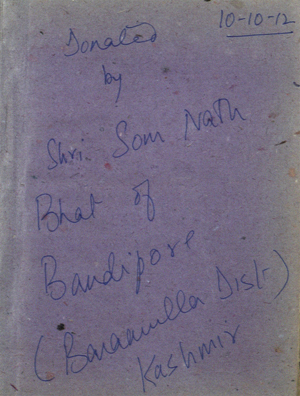 10-10-12
Donated
by
Shri. Som Nath
Bhat of
Bandipore
(Baramulla Dist-)
Kashmir